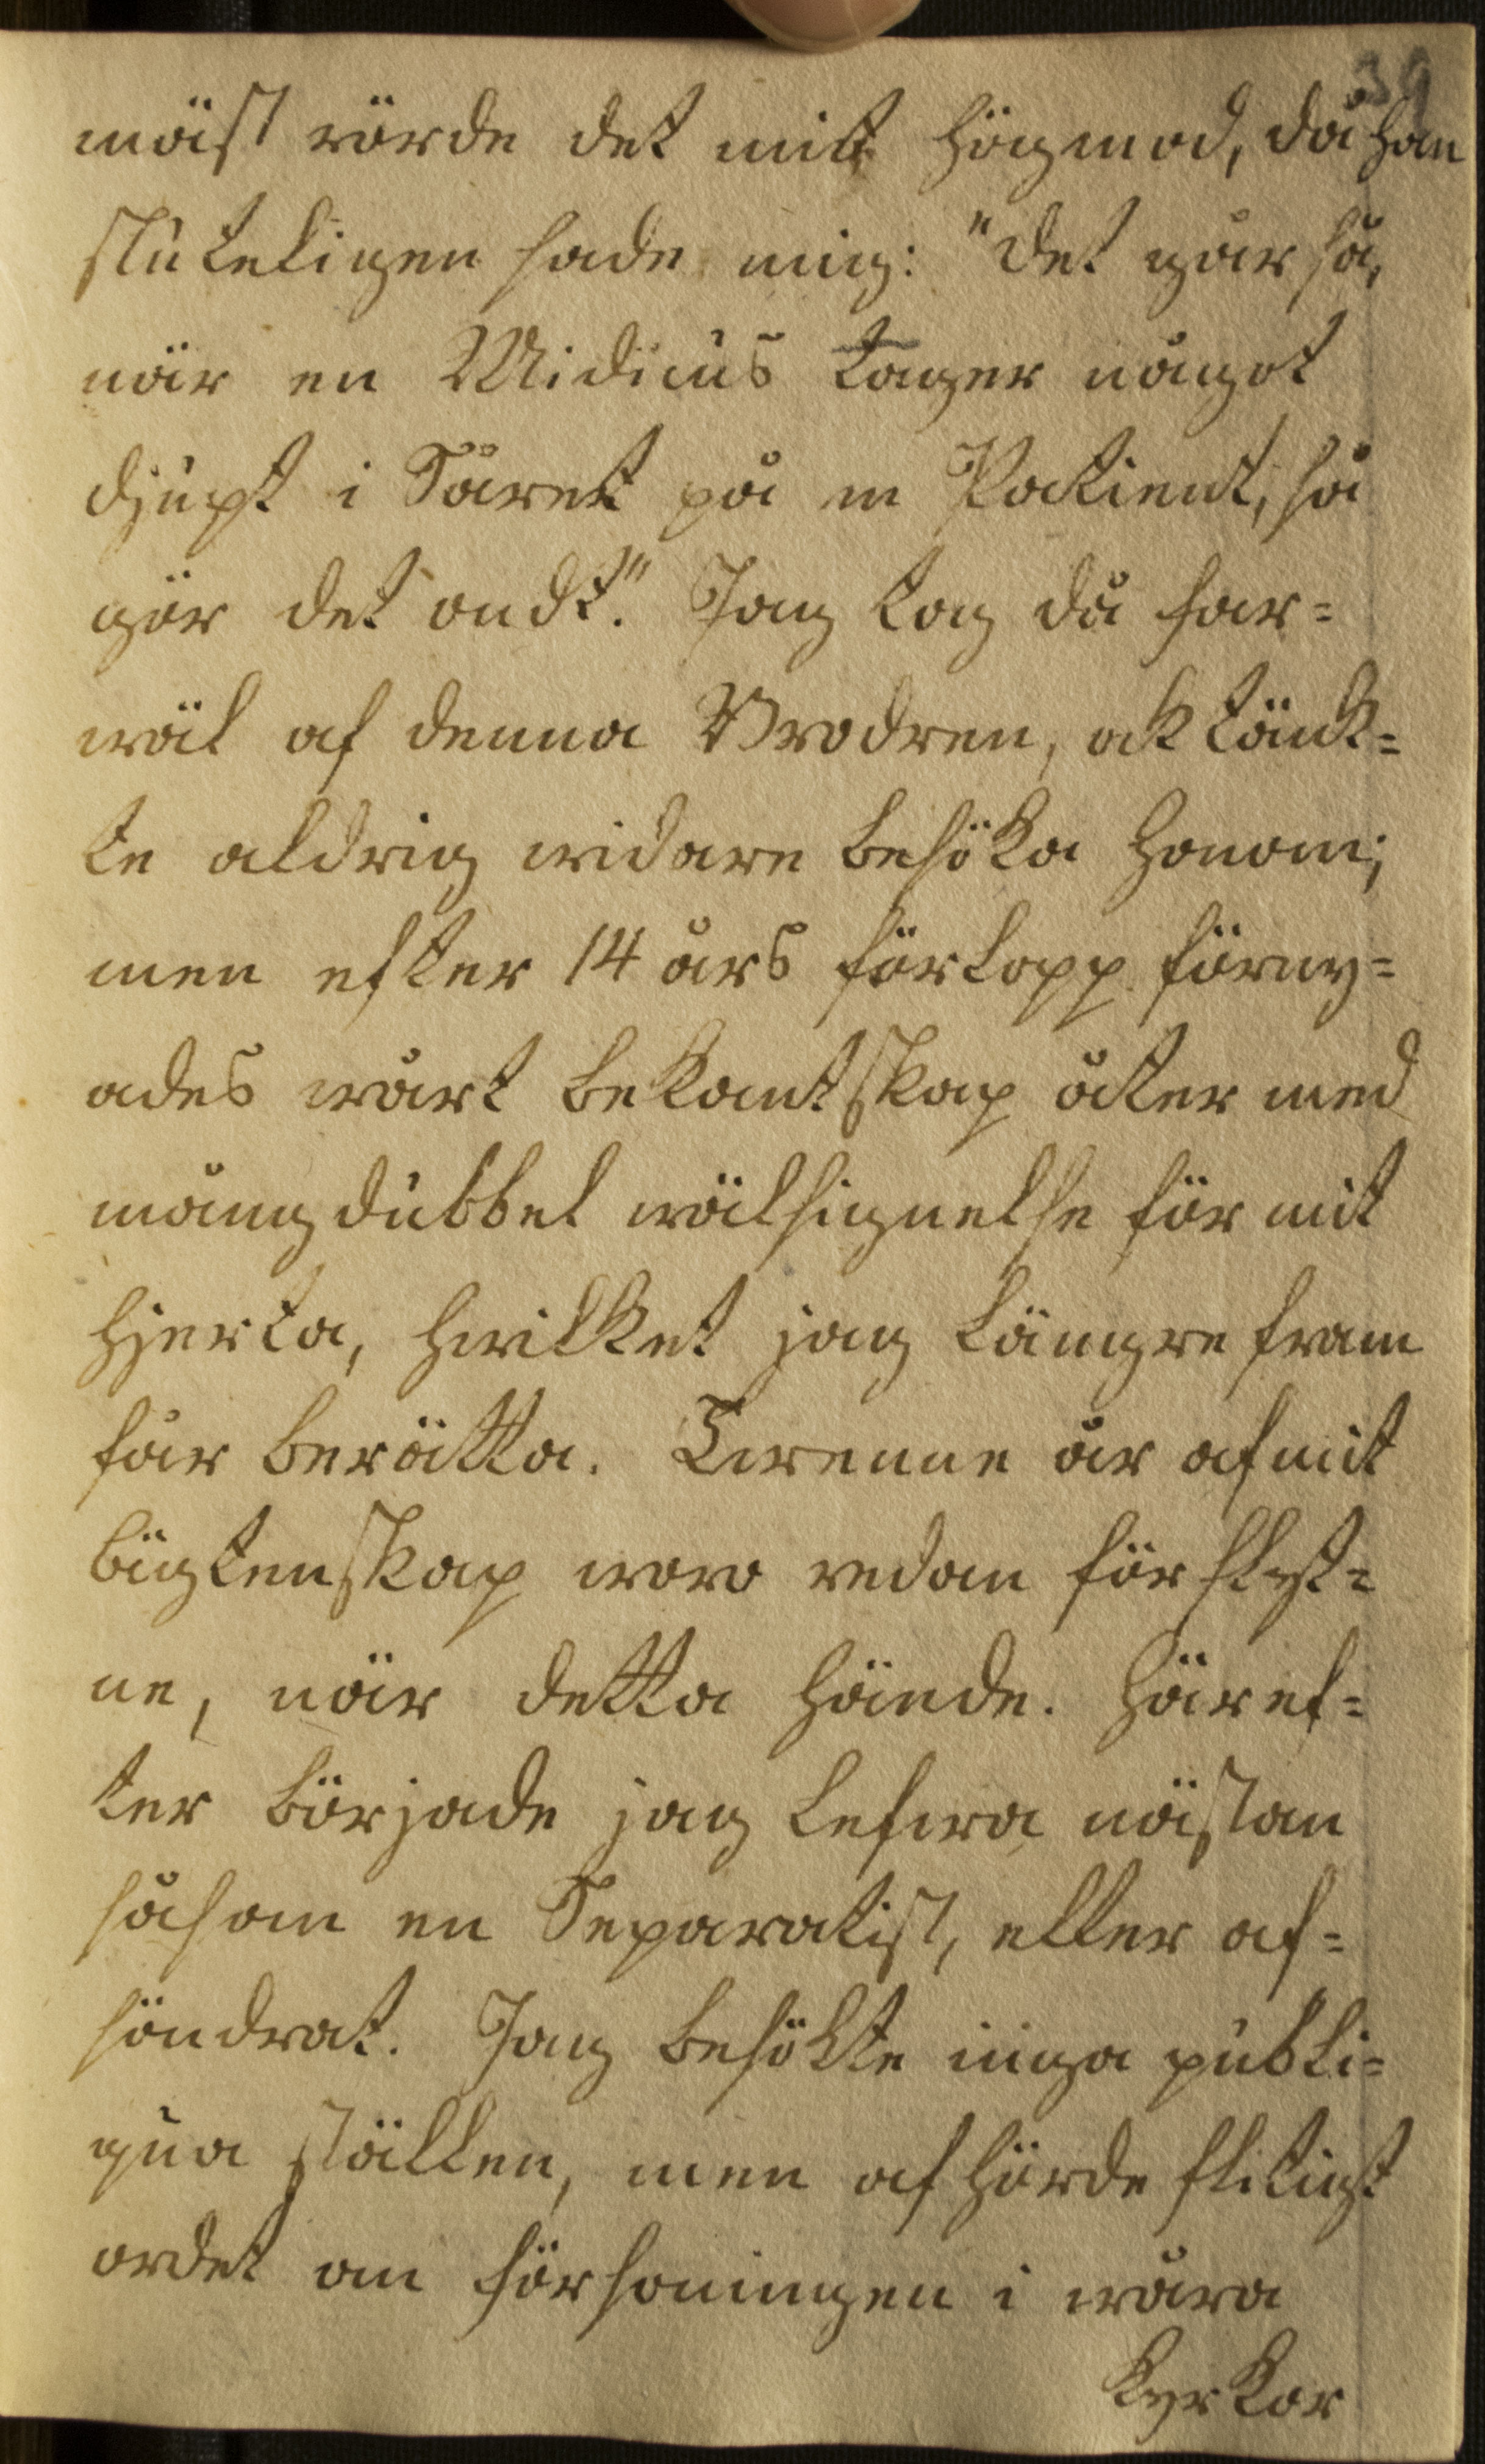 39
mäst rörde det mitt högmod, då han
sluteligen sade mig: "Det går så,
när en Midicus tager något
djupt i Såret på en Patient, så
gör det ondt." Jag tog då far=
wäl af denna Brodren, ock tänck=
te aldrig widare besöka honom;
men efter 14 års förlopp förny=
ades wårt bekantskap åter med
mångdubbel wälsignelse för mit
hjerta, hwilket jag längre fram
får berätta. Twenne år af mit
bigtenskap woro redan förflyt=
ne, när detta hände. Häref=
ter började jag lefwa nästan
såsom en Separatist, eller af=
söndrat. Jag besökte inga publi=
qua ställen, men afhörde flitigt
ordet om försoningen i wåra
kyrkor